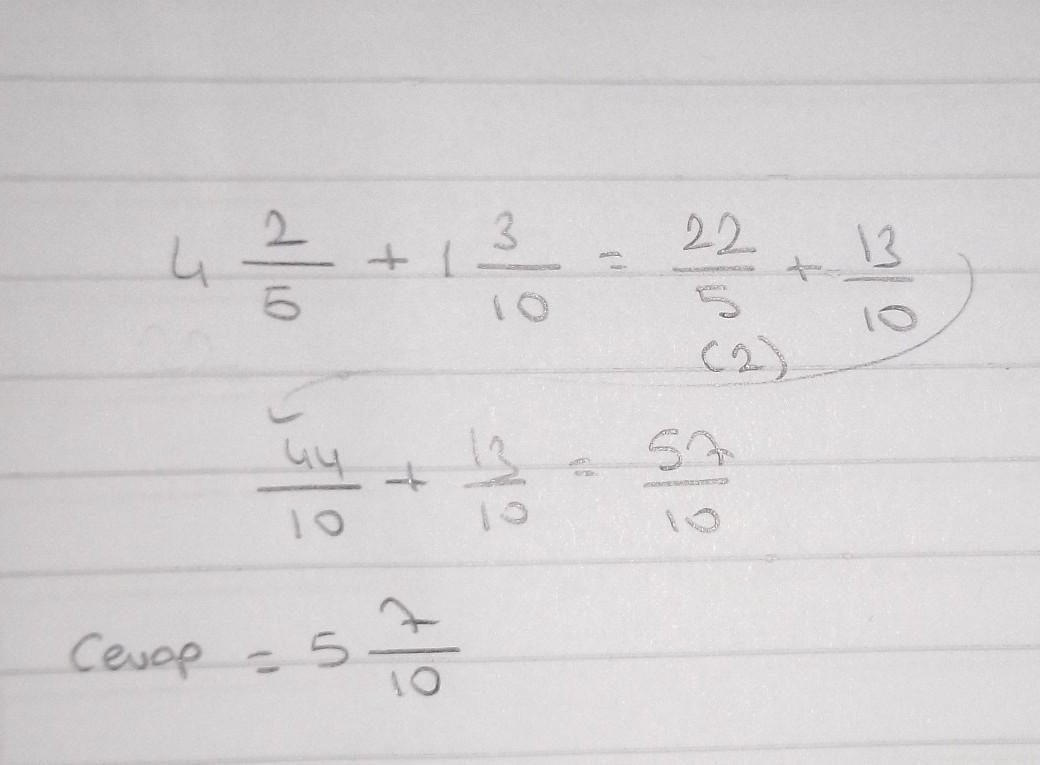 4 2/5 + 1 3/10 = 22/5 + 13/10
(2)
44/10 + 13/10 = 57/10
Cevap = 5 7/10